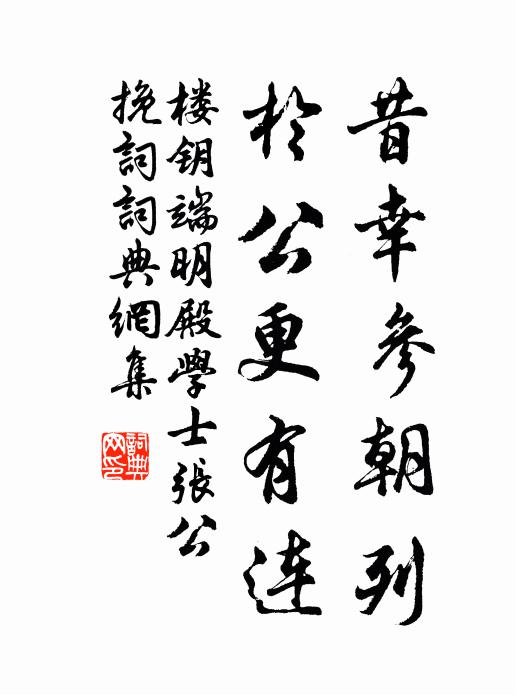 昔幸參朝列
於公更有連
楼钥端明殿學士張公
挽詞詞典網集
詞典
网印